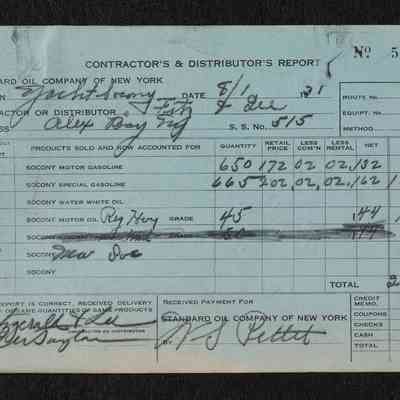 CONTRACTOR'S & DISTRIBUTOR'S REPORT Nº 5
ARD OIL COMPANY OF NEW YORK
N Yacht Socony DATE 8/1 31 ROUTE No.
ACTOR OR DISTRIBUTOR & Lee EQUIPT. No.
SS Alex Bay NY S. S. No. 515 METHOD
PRODUCTS SOLD AND NOW ACCOUNTED FOR QUANTITY RETAIL PRICE LESS COM'N LESS RENTAL NET
SOCONY MOTOR GASOLINE 650 172 02 02 132
SOCONY SPECIAL GASOLINE 665 202 02 02 162 1
SOCONY WATER WHITE OIL
SOCONY MOTOR OIL Reg Hvy GRADE 45 .44
SOCONY GRADE 50
SOCONY
SOCONY
TOTAL
REPORT IS CORRECT, RECEIVED DELIVERY
OF SAME QUANTITIES OF SAME PRODUCTS
RECEIVED PAYMENT FOR
STANDARD OIL COMPANY OF NEW YORK
CREDIT MEMO.
COUPONS
CHECKS
CASH
TOTAL
zgerald & Lee
CONTRACTOR OR DISTRIBUTOR
Per Taylor
Pettit